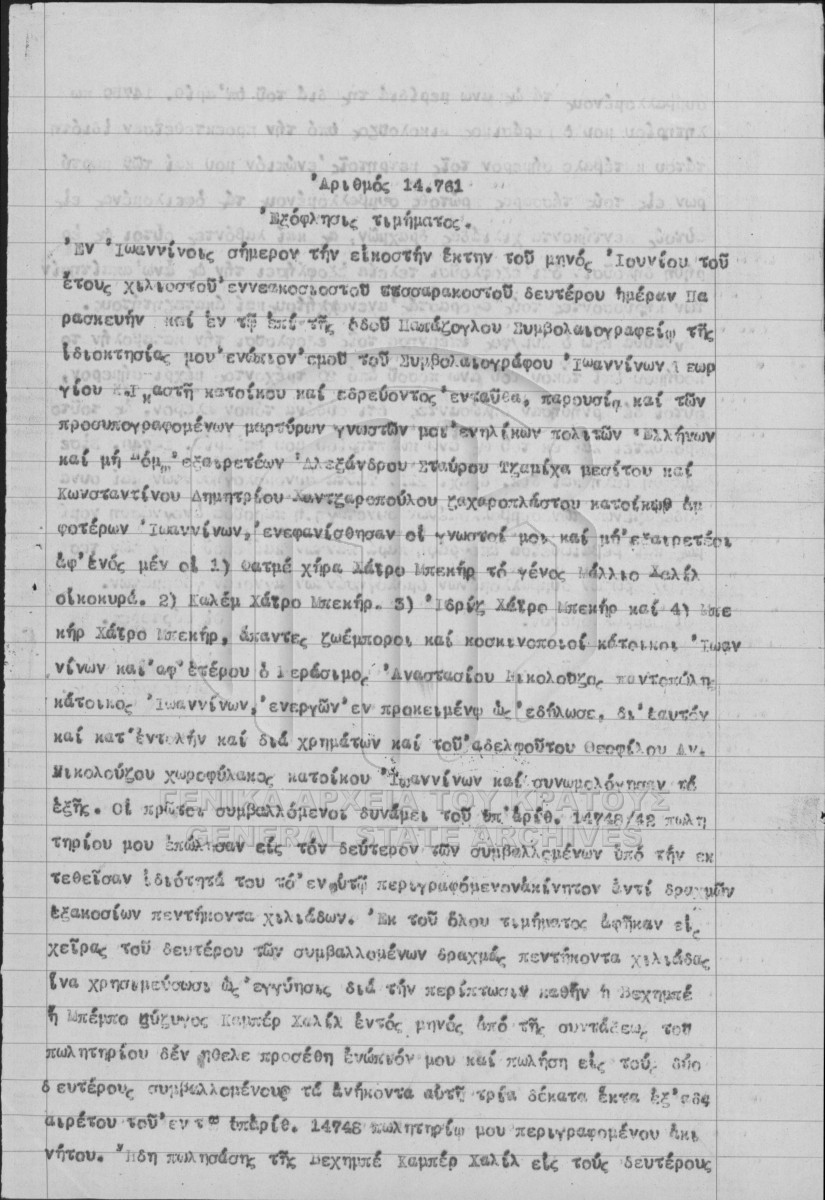 Ἀριθμός 14.761
Ἐξόφλησις τιμήματος.
Ἐν Ἰωαννίνοις σήμερον τήν εἰκοστήν ἕκτην τοῦ μηνός Ἰουνίου τοῦ
ἔτους χιλιοστοῦ ἐννεακοσιοστοῦ τεσσαρακοστοῦ δευτέρου ἡμέραν Πα
ρασκευήν καί ἐν τῷ ἐπί τῆς ὁδοῦ Παπάζογλου Συμβολαιογραφείῳ τῆς
ἰδιοκτησίας μου ἐνώπιον ἐμοῦ τοῦ Συμβολαιογράφου Ἰωαννίνων Γεωρ
γίου κατοίκου καί ἑδρεύοντος ἐνταῦθα, παρουσίᾳ καί τῶν
προσυπογραφομένων μαρτύρων γνωστῶν μοι ἐνηλίκων πολιτῶν Ἑλλήνων
καί μή ἐξαιρετέων Ἀλεξάνδρου Σταύρου Τζαμίχα μεσίτου καί
Κωνσταντίνου Δημητρίου Χαντζαροπούλου ζαχαροπλάστου κατοίκων ἀμ
φοτέρων Ἰωαννίνων, ἐνεφανίσθησαν οἱ γνωστοί μοι καί μή ἐξαιρετέοι
ἀφ' ἑνός μέν οἱ 1) Φατμέ χήρα Χάτρο Μπεκήρ τό γένος Μάλλιο Χαλίλ
οἰκοκυρά. 2) Καλέμ Χάτρο Μπεκήρ. 3) Ἰδρίζ Χάτρο Μπεκήρ καί 4) Μπε
κήρ Χάτρο Μπεκήρ, ἅπαντες ζωέμποροι καί κοσκινοποιοί κάτοικοι Ἰωαν
νίνων καί ἀφ' ἑτέρου ὁ Γεράσιμος Ἀναστασίου Νικολούζος παντοπώλης
κάτοικος Ἰωαννίνων, ἐνεργῶν ἐν προκειμένῳ ὡς ἐδήλωσε, δι' ἑαυτόν
καί κατ' ἐντολήν καί διά χρημάτων καί τοῦ ἀδελφοῦ του Θεοφίλου Αν.
Νικολούζου χωροφύλακος κατοίκου Ἰωαννίνων καί συνωμολόγησαν τά
ἑξῆς. Οἱ πρῶτοι συμβαλλόμενοι δυνάμει τοῦ ὑπ' ἀριθ. 14748/42 πωλη
τηρίου μου ἐπώλησαν εἰς τόν δεύτερον τῶν συμβαλλομένων ὑπό τήν ἐκ
τεθεῖσαν ἰδιότητά του τό ἐν αὐτῷ περιγραφόμενον ἀκίνητον ἀντί δραχμῶν
ἑξακοσίων πεντήκοντα χιλιάδων. Ἐκ τοῦ ὅλου τιμήματος ἀφῆκαν εἰς
χεῖρας τοῦ δευτέρου τῶν συμβαλλομένων δραχμάς πεντήκοντα χιλιάδας
ἵνα χρησιμεύσωσι ὡς ἐγγύησις διά τήν περίπτωσιν καθ' ἥν ἡ Βεχημπέ
ἤ Μπέμπο σύζυγος Καμπέρ Χαλίλ ἐντός μηνός ἀπό τῆς συντάξεως τοῦ
πωλητηρίου δέν ἤθελε προσέθη ἐνώπιόν μου καί πωλήση εἰς τούς δύο
δευτέρους συμβαλλομένους τά ἀνήκοντα αὐτῇ τρία δέκατα ἕκτα ἐξ ἀδι
αιρέτου τοῦ ἐν τῷ ὑπ' ἀριθ. 14748 πωλητηρίῳ μου περιγραφομένου ἀκι
νήτου. Ἤδη πωλησάσης τῆς Βεχημπέ Καμπέρ Χαλίλ εἰς τούς δευτέρους
ΓΕΝΙΚΑ ΑΡΧΕΙΑ ΤΟΥ ΚΡΑΤΟΥΣ
GENERAL STATE ARCHIVES